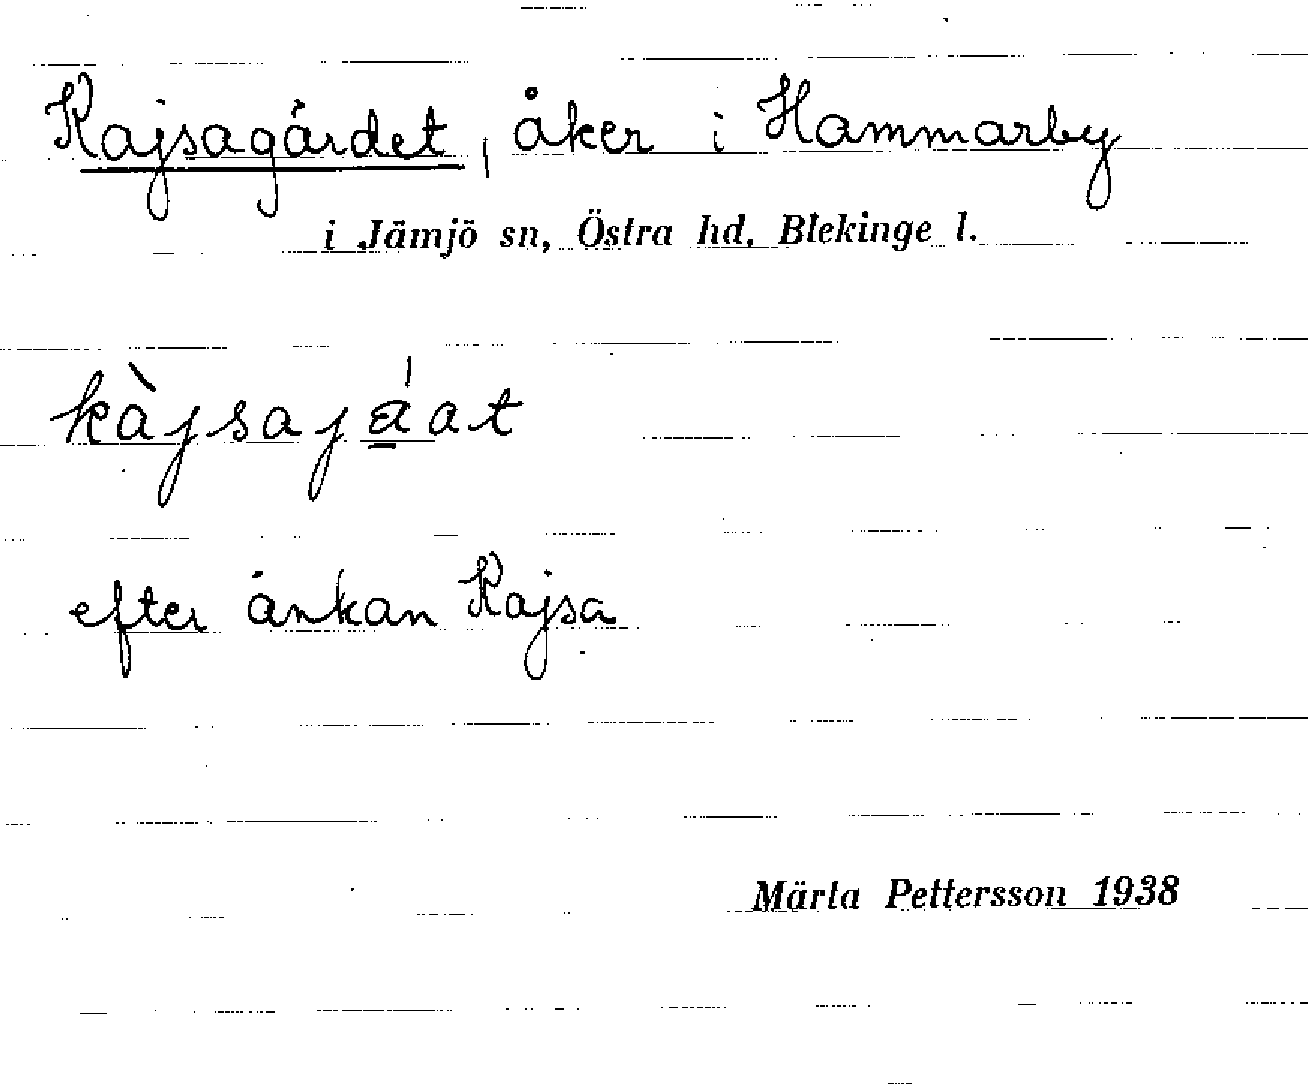 Kajsagärdet, åker i Hammarby
i Jämjö sn, Östra hd, Blekinge l.
kàjsajáat
efter änkan Kajsa
Märta Pettersson 1938